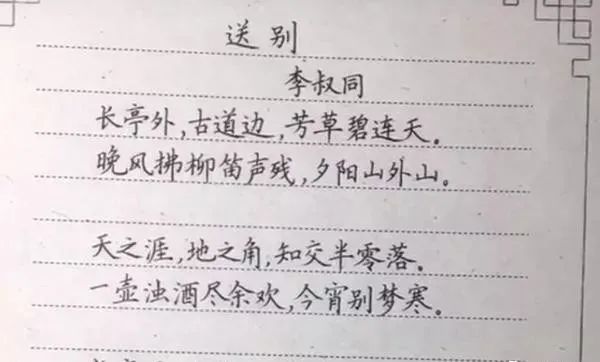 送别
李叔同
长亭外,古道边,芳草碧连天。
晚风拂柳笛声残,夕阳山外山。
天之涯,地之角,知交半零落。
一壶浊酒尽余欢,今宵别梦寒。